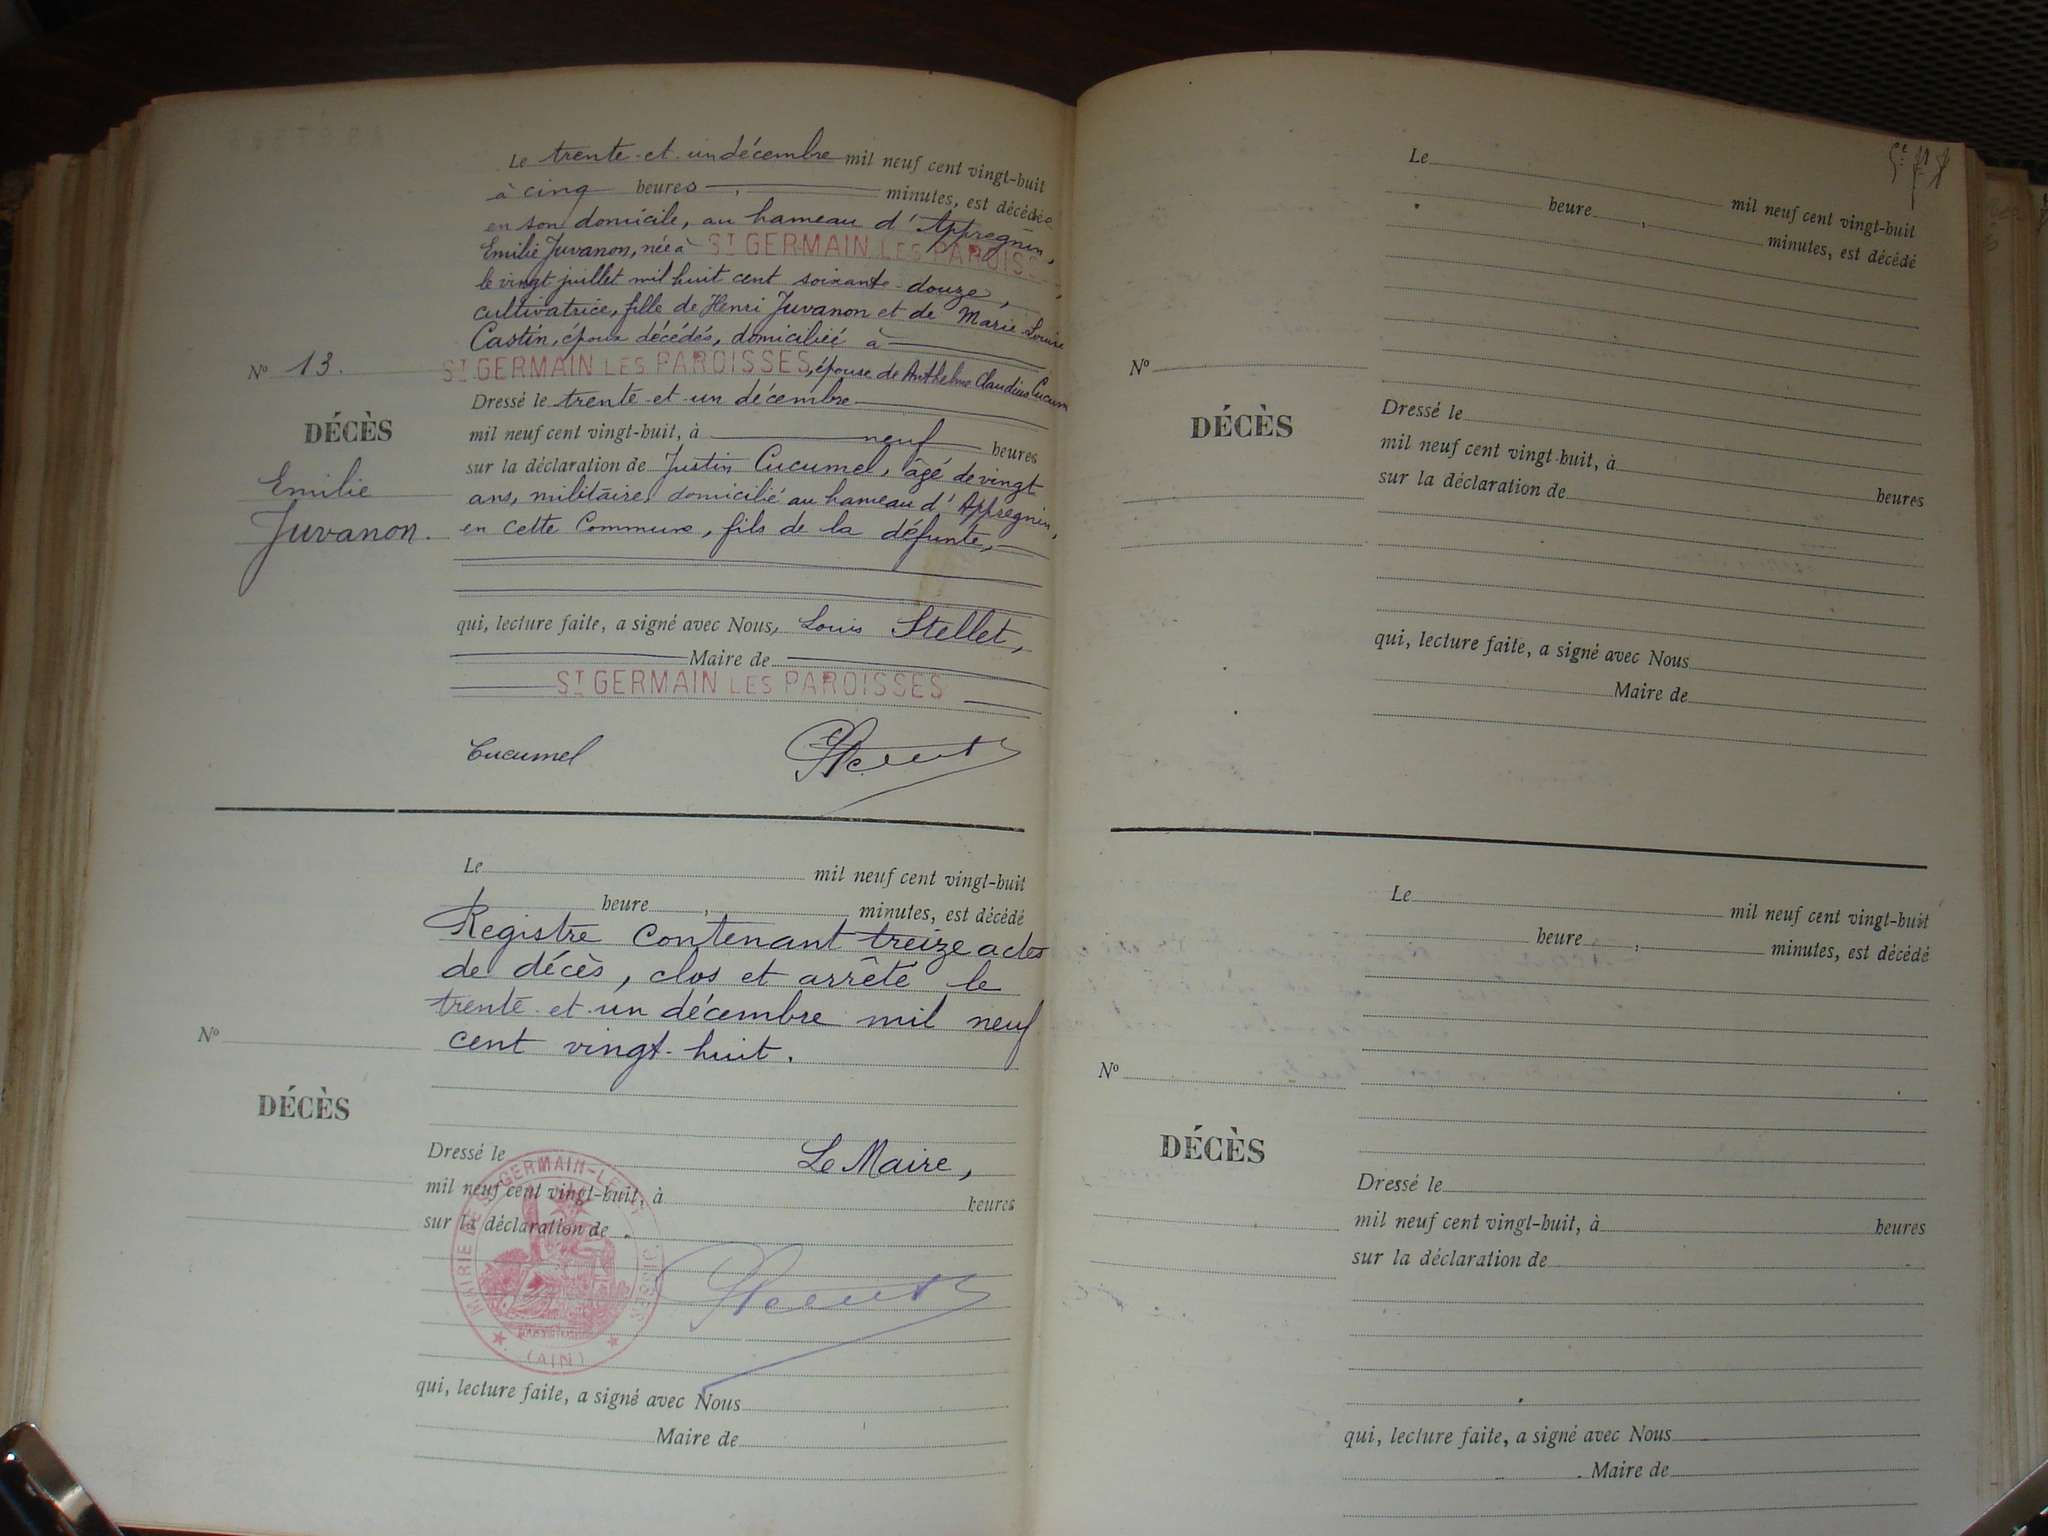 Le trente-et-un décembre mil neuf cent vingt-huit
à cinq heures , minutes, est décédée
en son domicile, au hameau d'Appregnin,
Emilie Juvanon, née à ST GERMAIN LES PAROISS
le vingt juillet mil huit cent soixante-douze,
cultivatrice, fille de Henri Juvanon et de Marie-Louise
Castin, époux décédés, domiciliée à
ST GERMAIN LES PAROISSES, épouse de Anthelme Claudius Cucum
Nº 13.
Dressé le trente-et-un décembre
DÉCÈS
mil neuf cent vingt-huit, à neuf heures
sur la déclaration de Justin Cucumel, âgé de vingt
Emilie
ans, militaire, domicilié au hameau d'Appregnin,
Juvanon.
en cette Commune, fils de la défunte,
qui, lecture faite, a signé avec Nous, Louis Stellet,
Maire de
ST GERMAIN LES PAROISSES
Cucumel
Le mil neuf cent vingt-huit
heure , minutes, est décédé
Registre contenant treize actes
de décès, clos et arrêté le
trente-et-un décembre mil neuf
cent vingt-huit.
Nº
DÉCÈS
Dressé le Le Maire,
mil neuf cent vingt-huit, à heures
sur la déclaration de
MAIRIE DE ST GERMAIN-LES-
(AIN)
qui, lecture faite, a signé avec Nous
Maire de
Le mil neuf cent vingt-huit
heure , minutes, est décédé
Nº
DÉCÈS
Dressé le
mil neuf cent vingt-huit, à
sur la déclaration de heures
qui, lecture faite, a signé avec Nous
Maire de
Le mil neuf cent vingt-huit
heure , minutes, est décédé
Nº
DÉCÈS
Dressé le
mil neuf cent vingt-huit, à heures
sur la déclaration de
qui, lecture faite, a signé avec Nous
Maire de